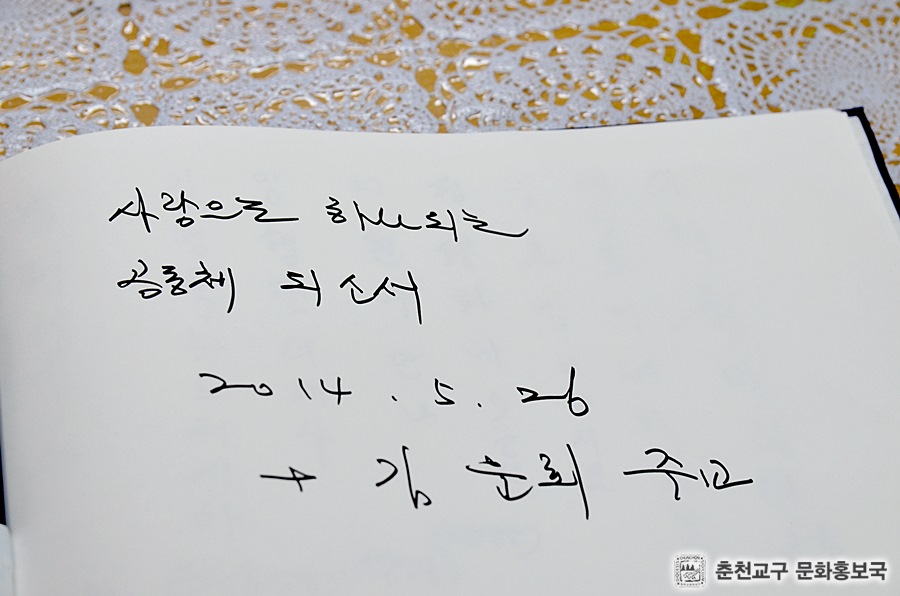 사랑으로 하나되는
공동체 되소서
2014. 5. 26
+ 김운회 주교
춘천교구 문화홍보국